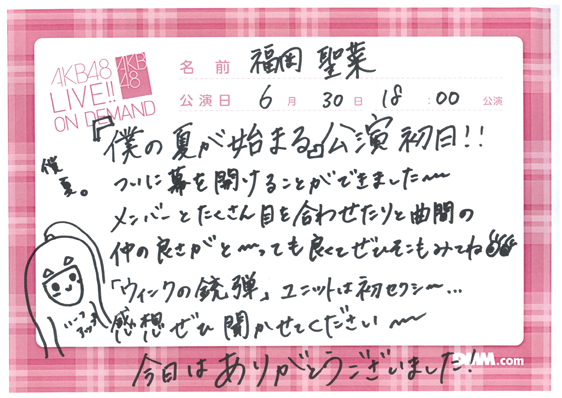 AKB48
LIVE!!
ON DEMAND
AKB
48
名前 福岡 聖菜
公演日 6月 30日 18:00 公演
『僕の夏が始まる』公演初日!!
僕夏。
ついに幕を開けることができました〜
メンバーとたくさん目を合わせたりと曲間の
仲の良さがと〜っても良くてぜひそこもみてね
「ウィンクの銃弾」ユニットは初セクシー…
感想ぜひ聞かせてください〜
今日はありがとうございました!
DMM.com